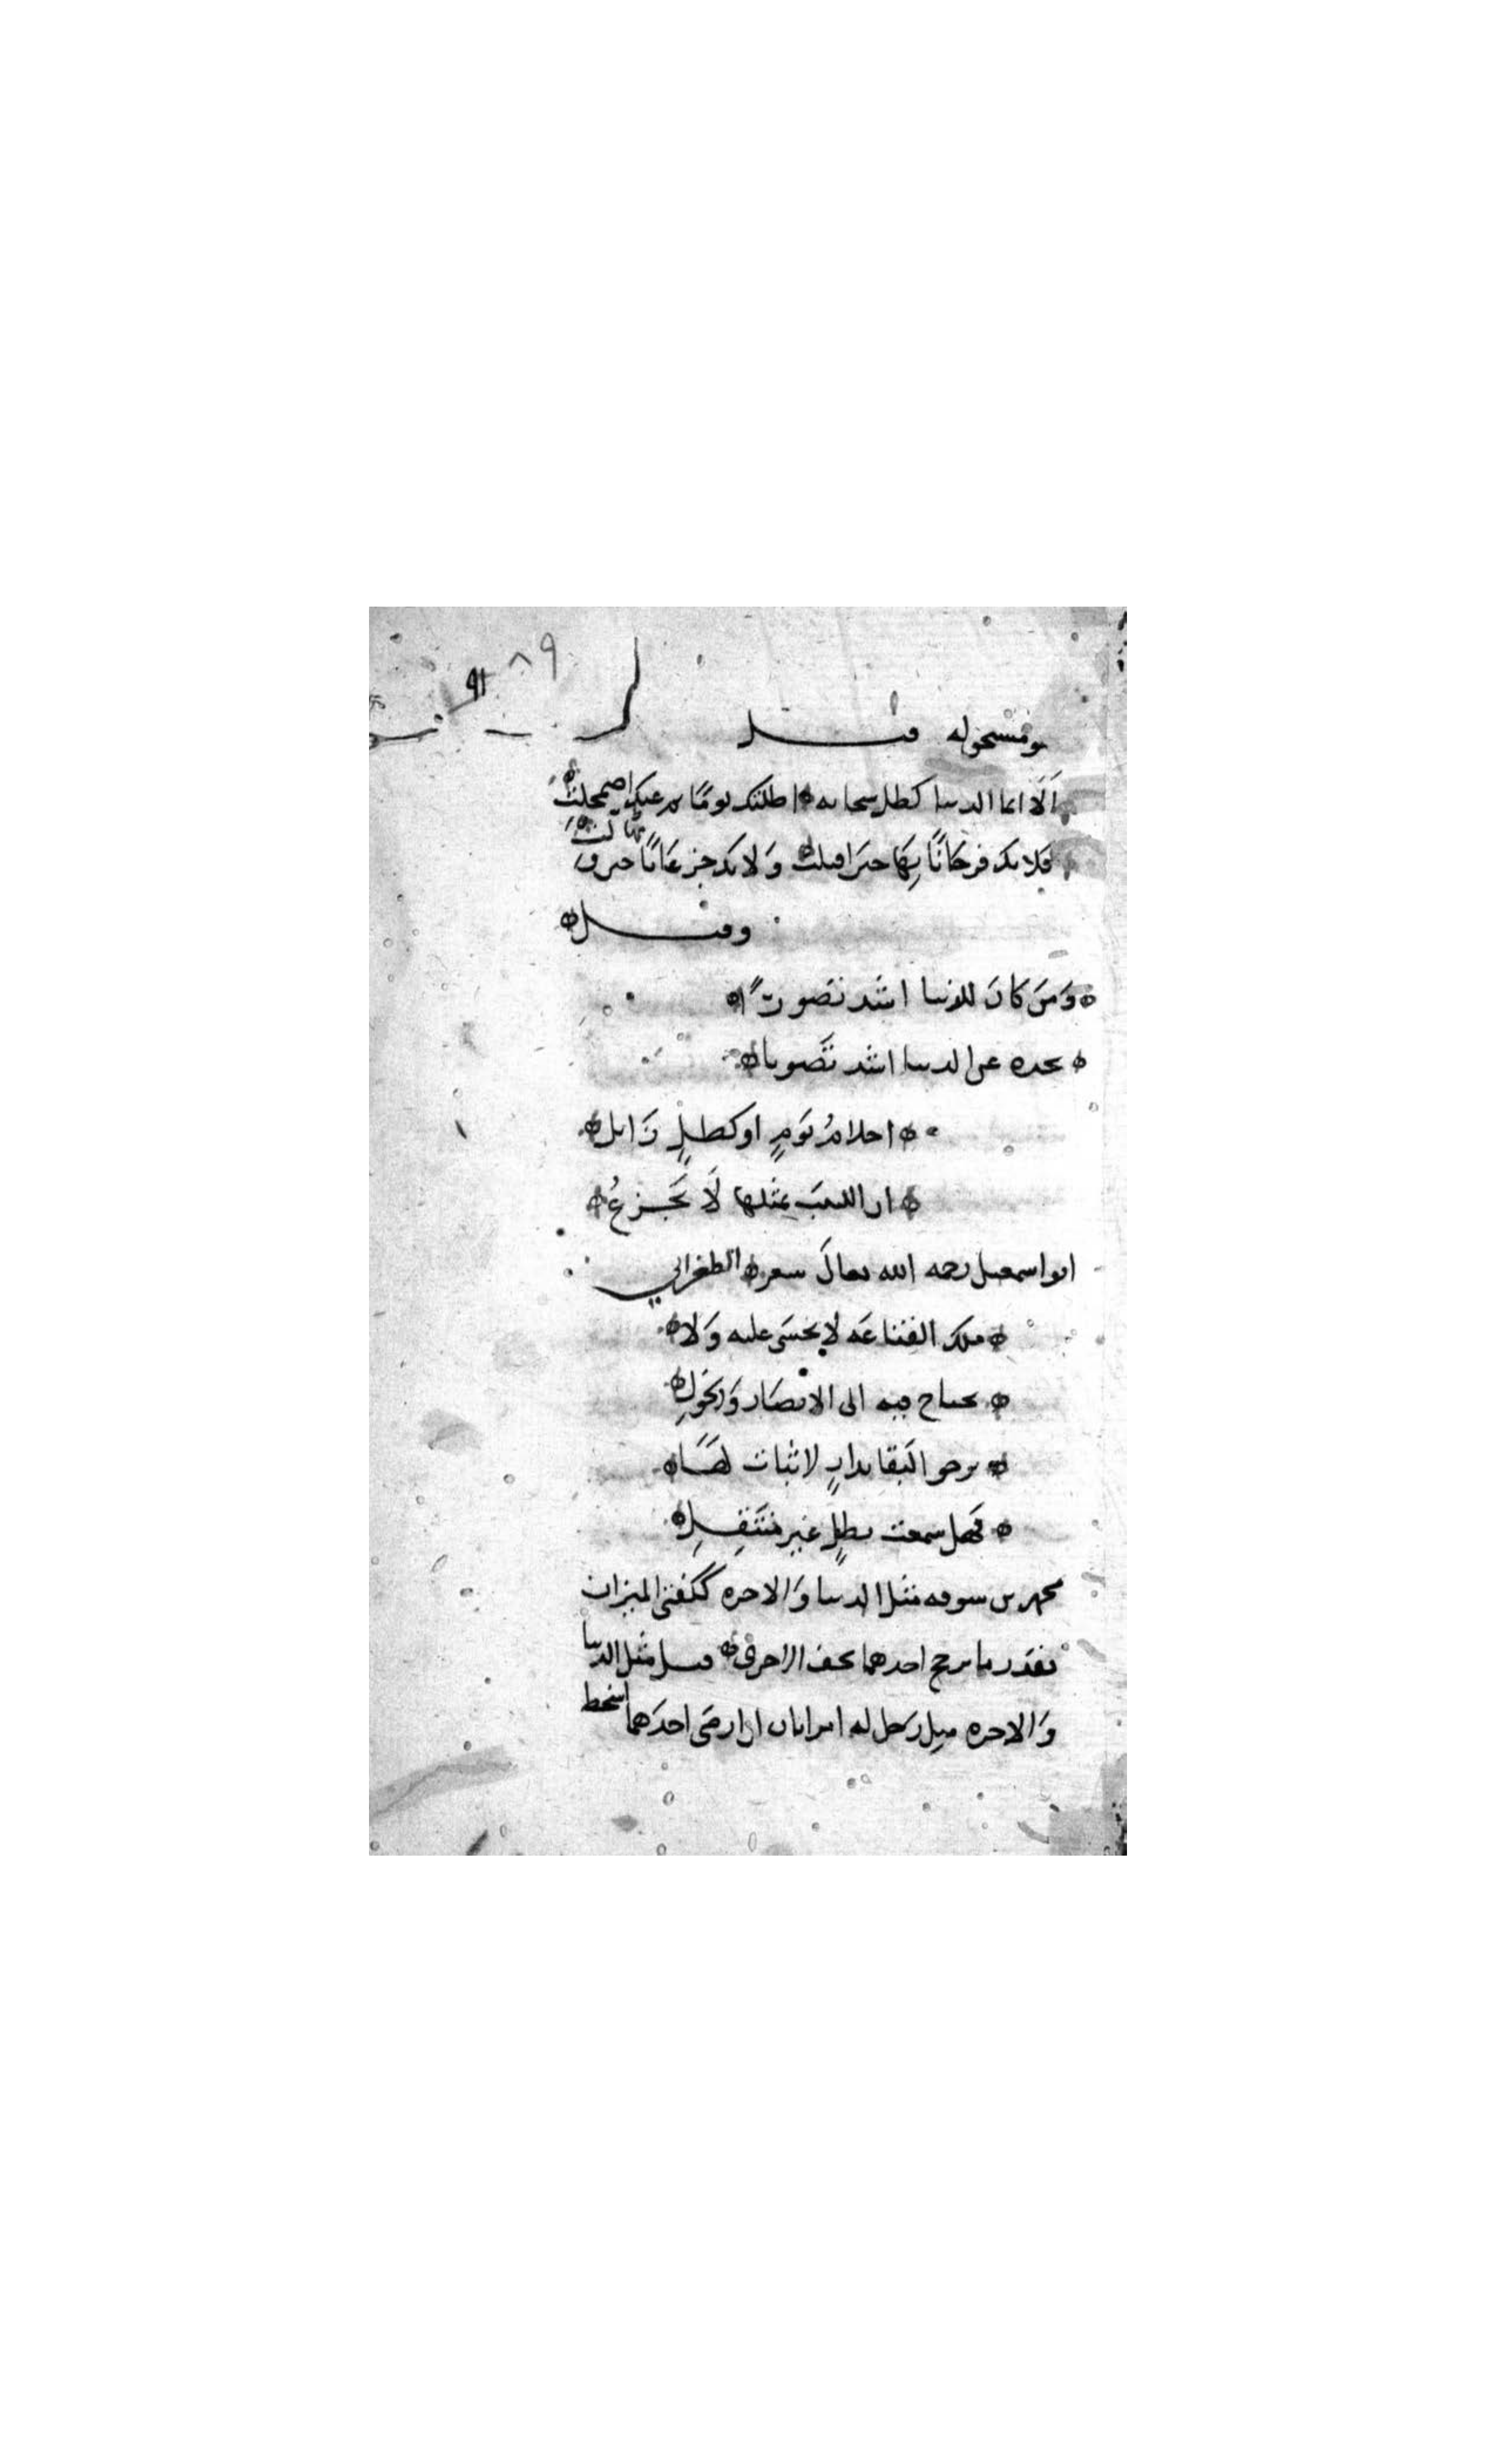 ٨٩
٩١
قيل
ألا انما الدنيا كظل سحابه اظلتك يومًا ثم عنك اضمحلت
فلا تك فرحانًا بها حين اقبلت ولا تك جزعانًا حين تولت
وقيل
ومن كان للدنيا اشد تصورًا
تجده عن الدنيا اشد تصونا
احلامُ نومٍ او كظلٍ زايل
ان اللبيبَ بمثلها لَا يُخدعُ
ابو اسمعيل رحمه الله تعالى شعر الطغرائي
ملك القناعَه لا يخشى عليه وَلا
يحتاج فيه الى الانصار وَالخولِ
ترجو البقا بدارٍ لا ثبات لهَا
فهل سمعت بظلٍ غير منتقلِ
محمد بن سوقه مثل الدنيا وَالاخره ككفتي الميزان
بقدر ما ترجح احدهما تخف الاخرى قيل مثل الدنيا
وَالاخره مثل رَجل له امراتان ان ارضى احدَهما اسخط